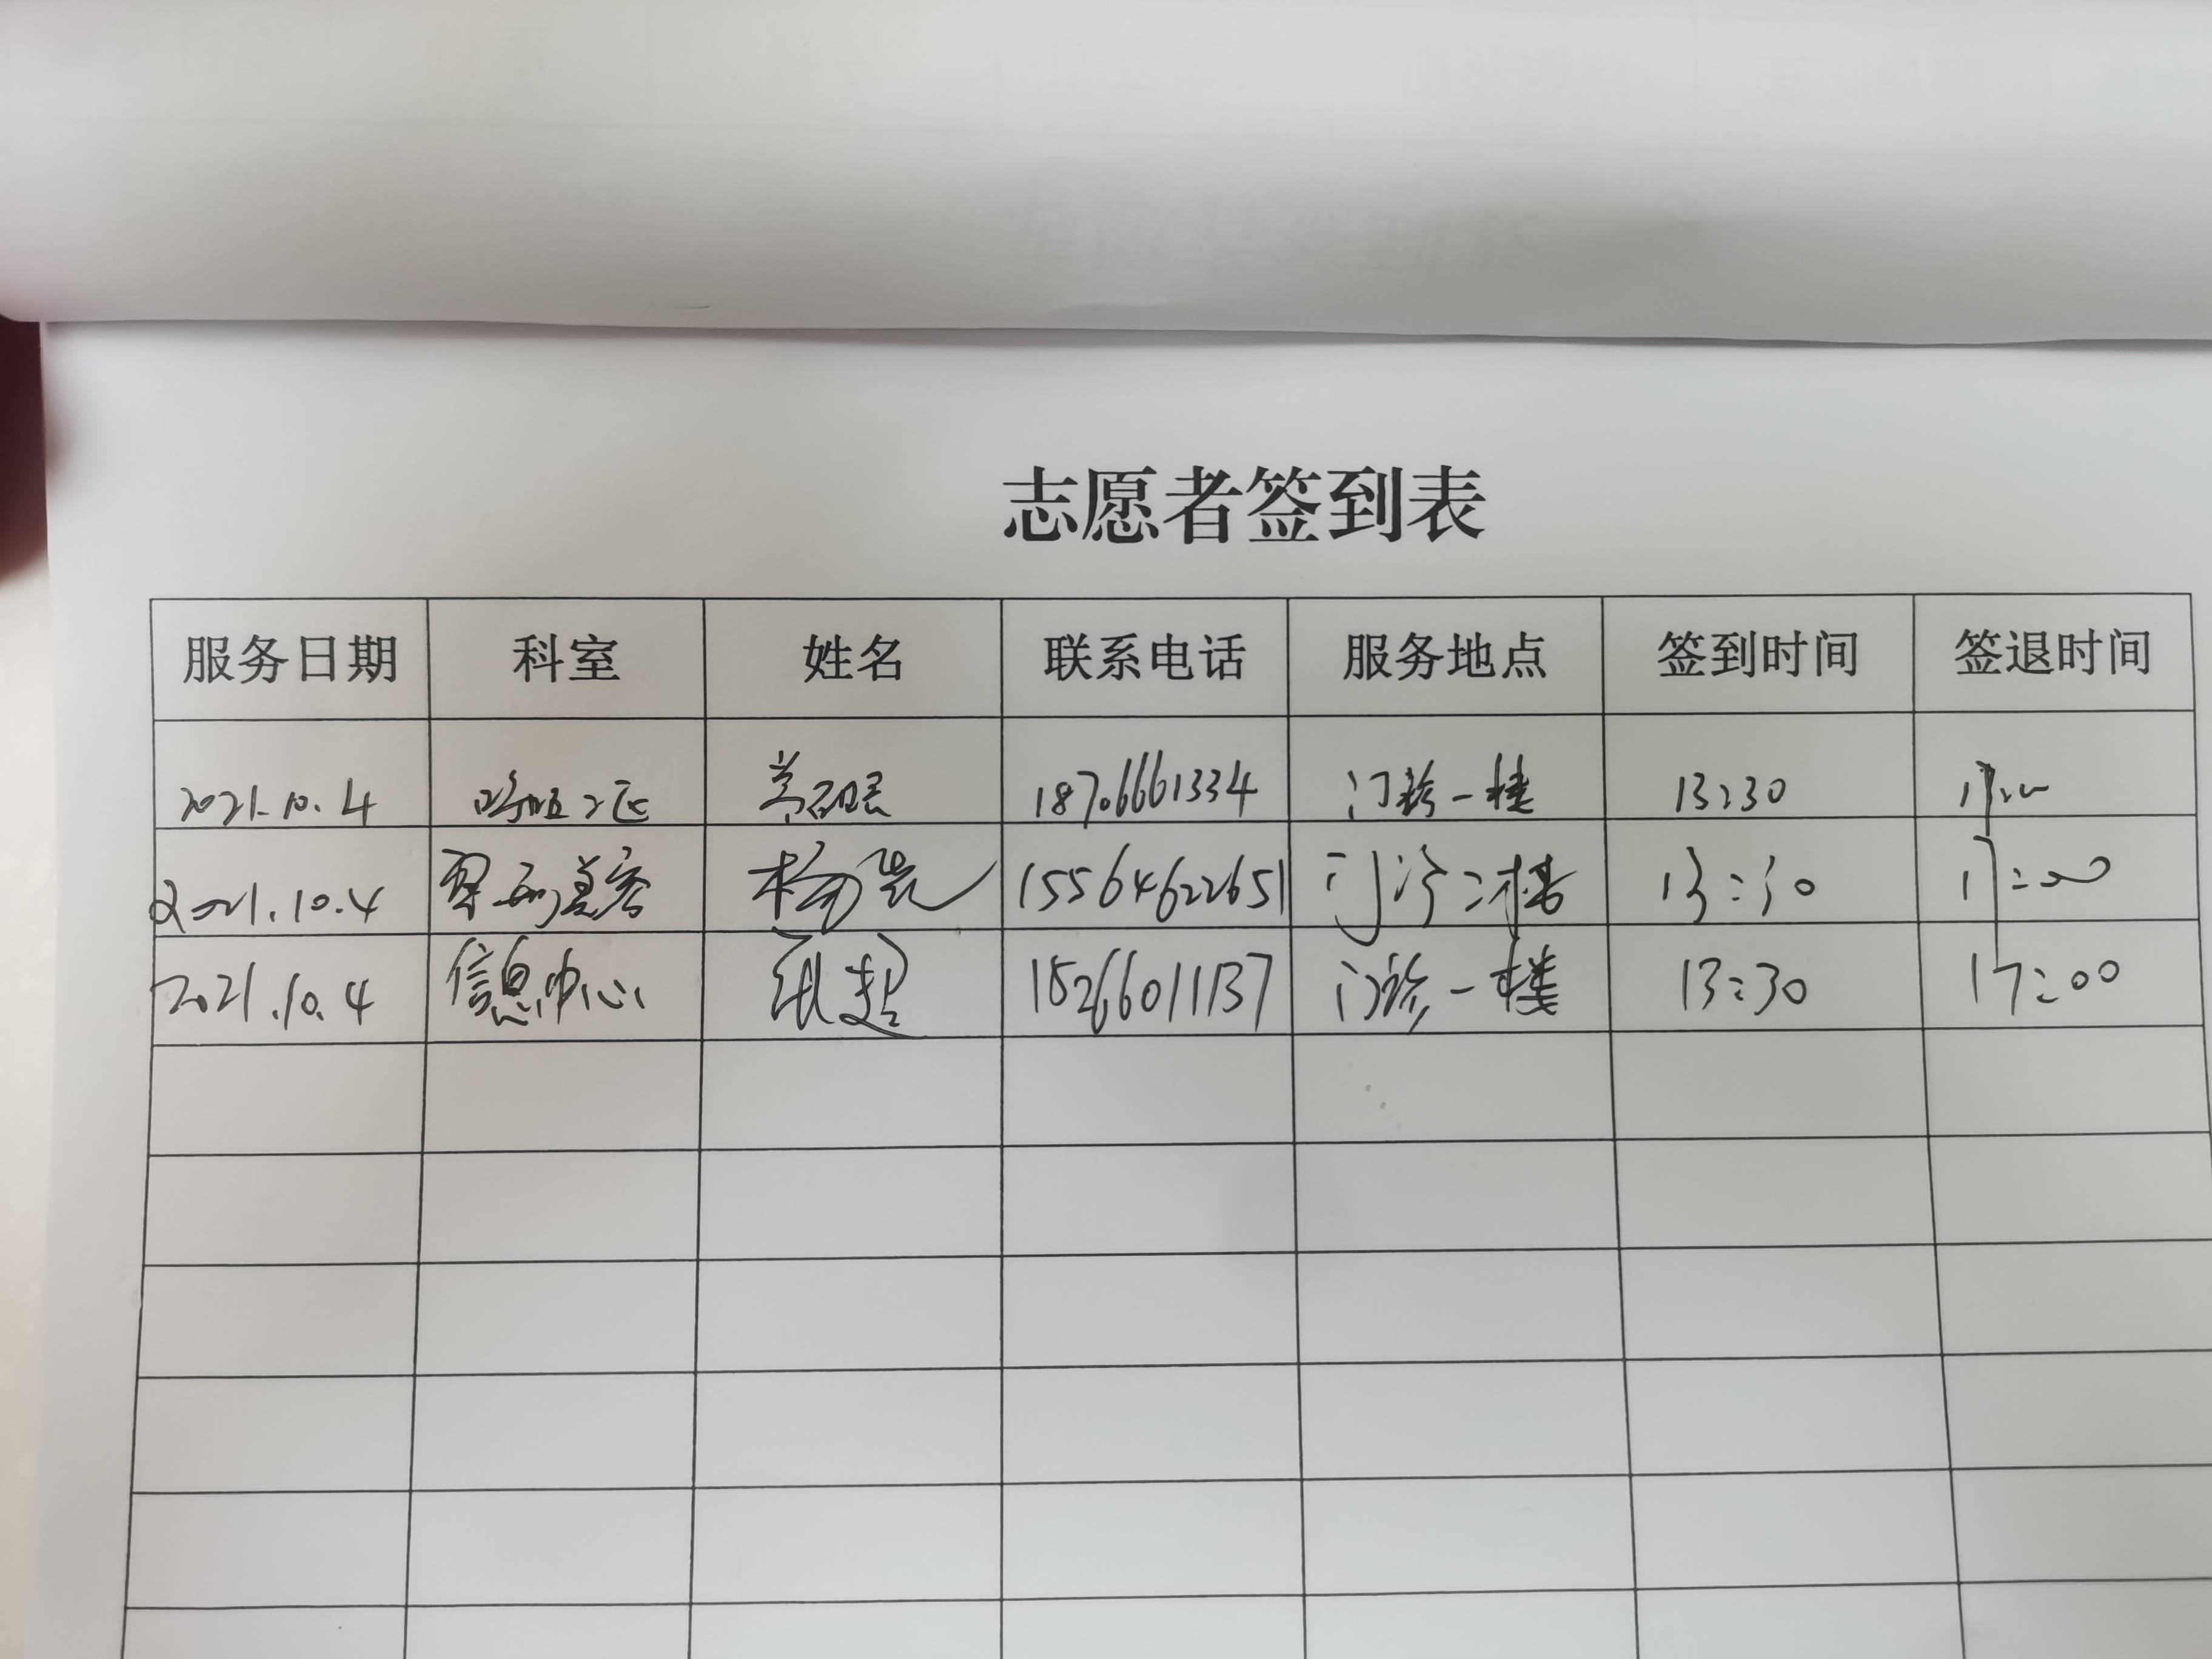 志愿者签到表
服务日期 科室 姓名 联系电话 服务地点 签到时间 签退时间
2021.10.4 18706661334 门诊一楼 13:30 17:00
2021.10.4 15564622651 门诊二楼 13:30 17:00
2021.10.4 信息中心 15266011137 门诊一楼 13:30 17:00